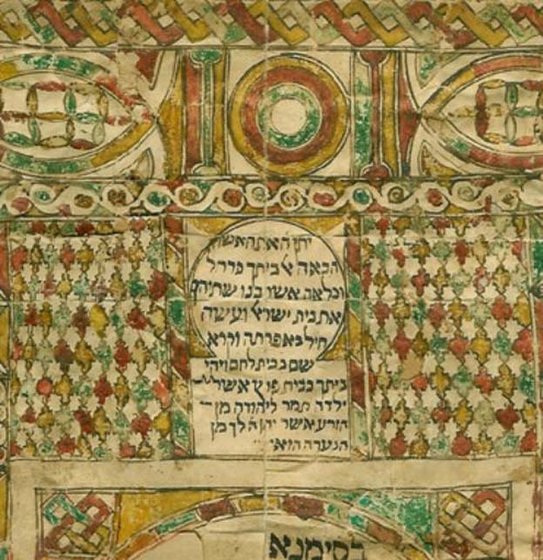 יתן ה' את האשה
הבאה אל ביתך כרחל
וכלאה אשר בנו שתיהם
את בית ישראל ועשה
חיל באפרתה וקרא
שם בבית לחם ויהי
ביתך כבית פרץ אשר
ילדה תמר ליהודה מן
הזרע אשר יתן ה' לך מן
הנערה הזאת
בסימנא